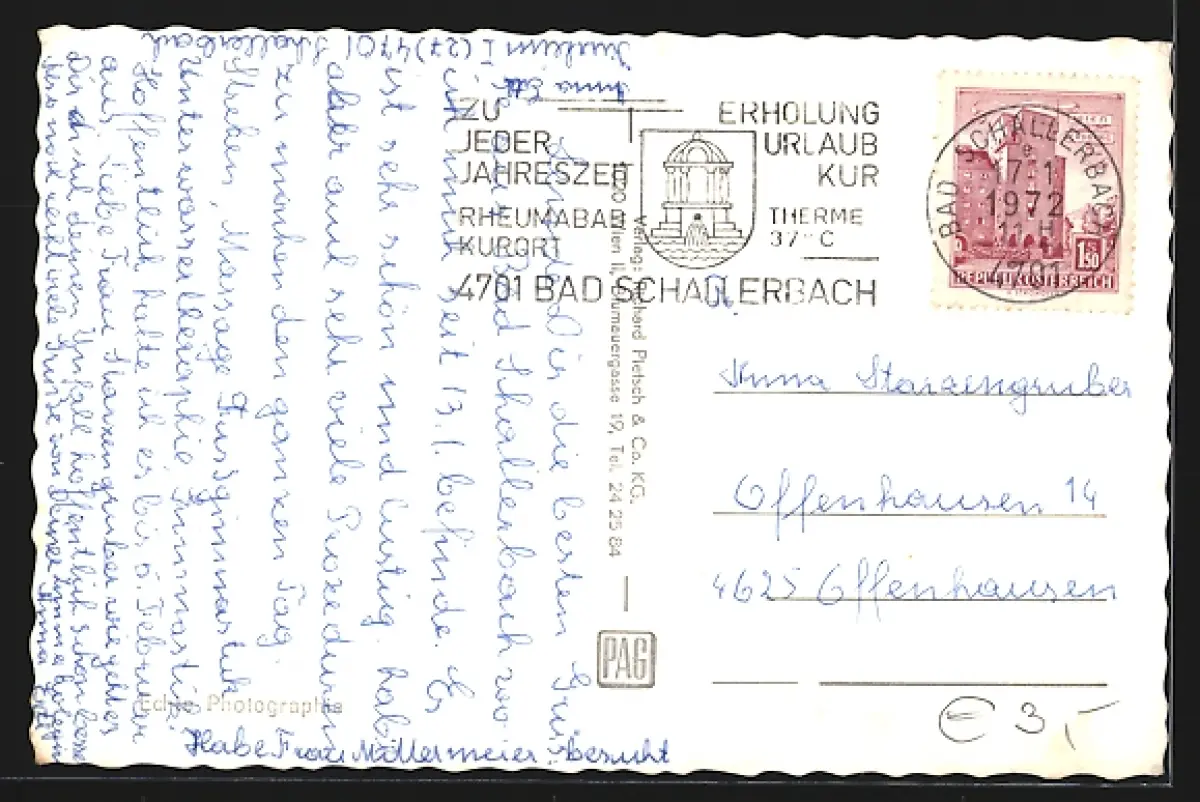 Anna Ettl
Juvleum I (27) 4701 Schallerbach
Sende Dir die besten Grüße
aus Bad Schallerbach wo
ich mich seit 13.1. befinde. Es
ist sehr schön und lustig. hab
aber auch sehr viele Prozeduren
zu machen den ganzen Tag.
Stehen, Massage Fussgimnastik
Unterwassertherapie Gimnastik
Hoffentlich halte ich es bis 5. Februar
aus, Liebe Frau Starzengruber wie geht es
Dir du und deinen Unfall hoffentlich schon besser
viele Grüße von Deiner
Anna Ettl
Habe Frau Mallermeier besucht
ZU
JEDER
JAHRESZEIT
RHEUMABAD
KURORT
ERHOLUNG
URLAUB
KUR
THERME
37°C
4701 BAD SCHALLERBACH
BAD SCHALLERBACH
17.1
1972
11 H
4701
WIEN
1.50
REPUBLIK ÖSTERREICH
Verlag: Richard Pietsch & Co. KG.
1020 Wien II, Blumauergasse 19, Tel. 24 25 84
PAG
Echte Photographie
Anna Starzengruber
Offenhausen 14
4625 Offenhausen
€ 3,-